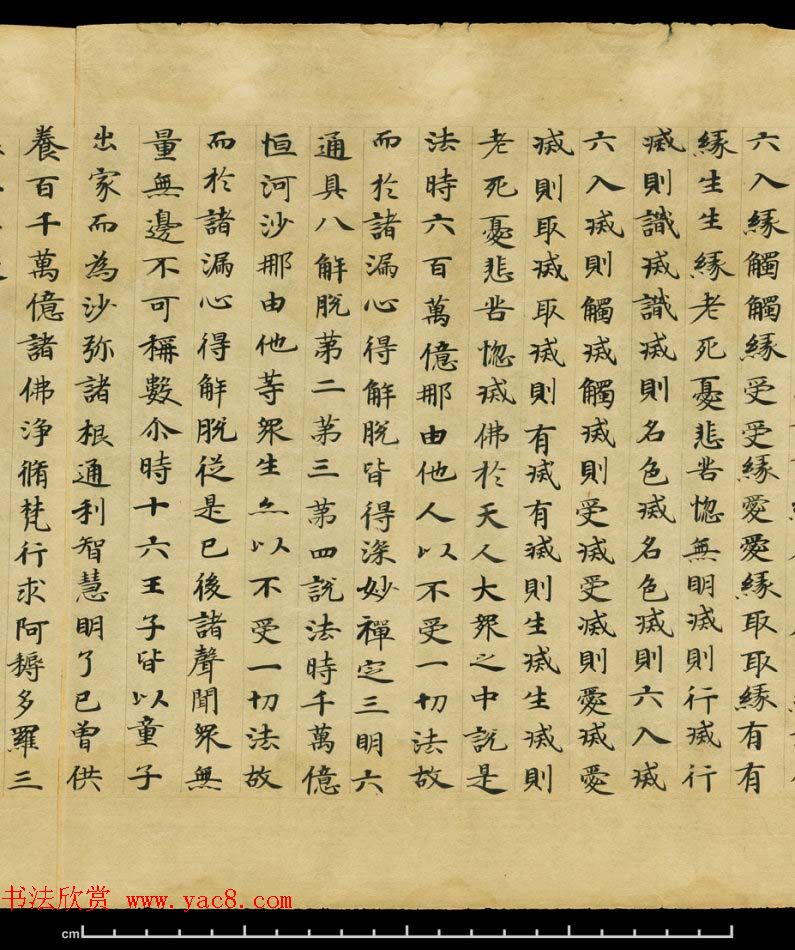 六入緣觸觸緣受受緣愛愛緣取取緣有有
緣生生緣老死憂悲苦惱無明滅則行滅行
滅則識滅識滅則名色滅名色滅則六入滅
六入滅則觸滅觸滅則受滅受滅則愛滅愛
滅則取滅取滅則有滅有滅則生滅生滅則
老死憂悲苦惱滅佛於天人大眾之中說是
法時六百萬億那由他人以不受一切法故
而於諸漏心得解脫皆得深妙禪定三明六
通具八解脫第二第三第四說法時千萬億
恒河沙那由他等眾生亦以不受一切法故
而於諸漏心得解脫從是已後諸聲聞眾無
量無邊不可稱數尒時十六王子皆以童子
出家而為沙弥諸根通利智慧明了已曾供
養百千萬億諸佛淨脩梵行求阿耨多羅三
书法欣赏 www.yac8.com
cm